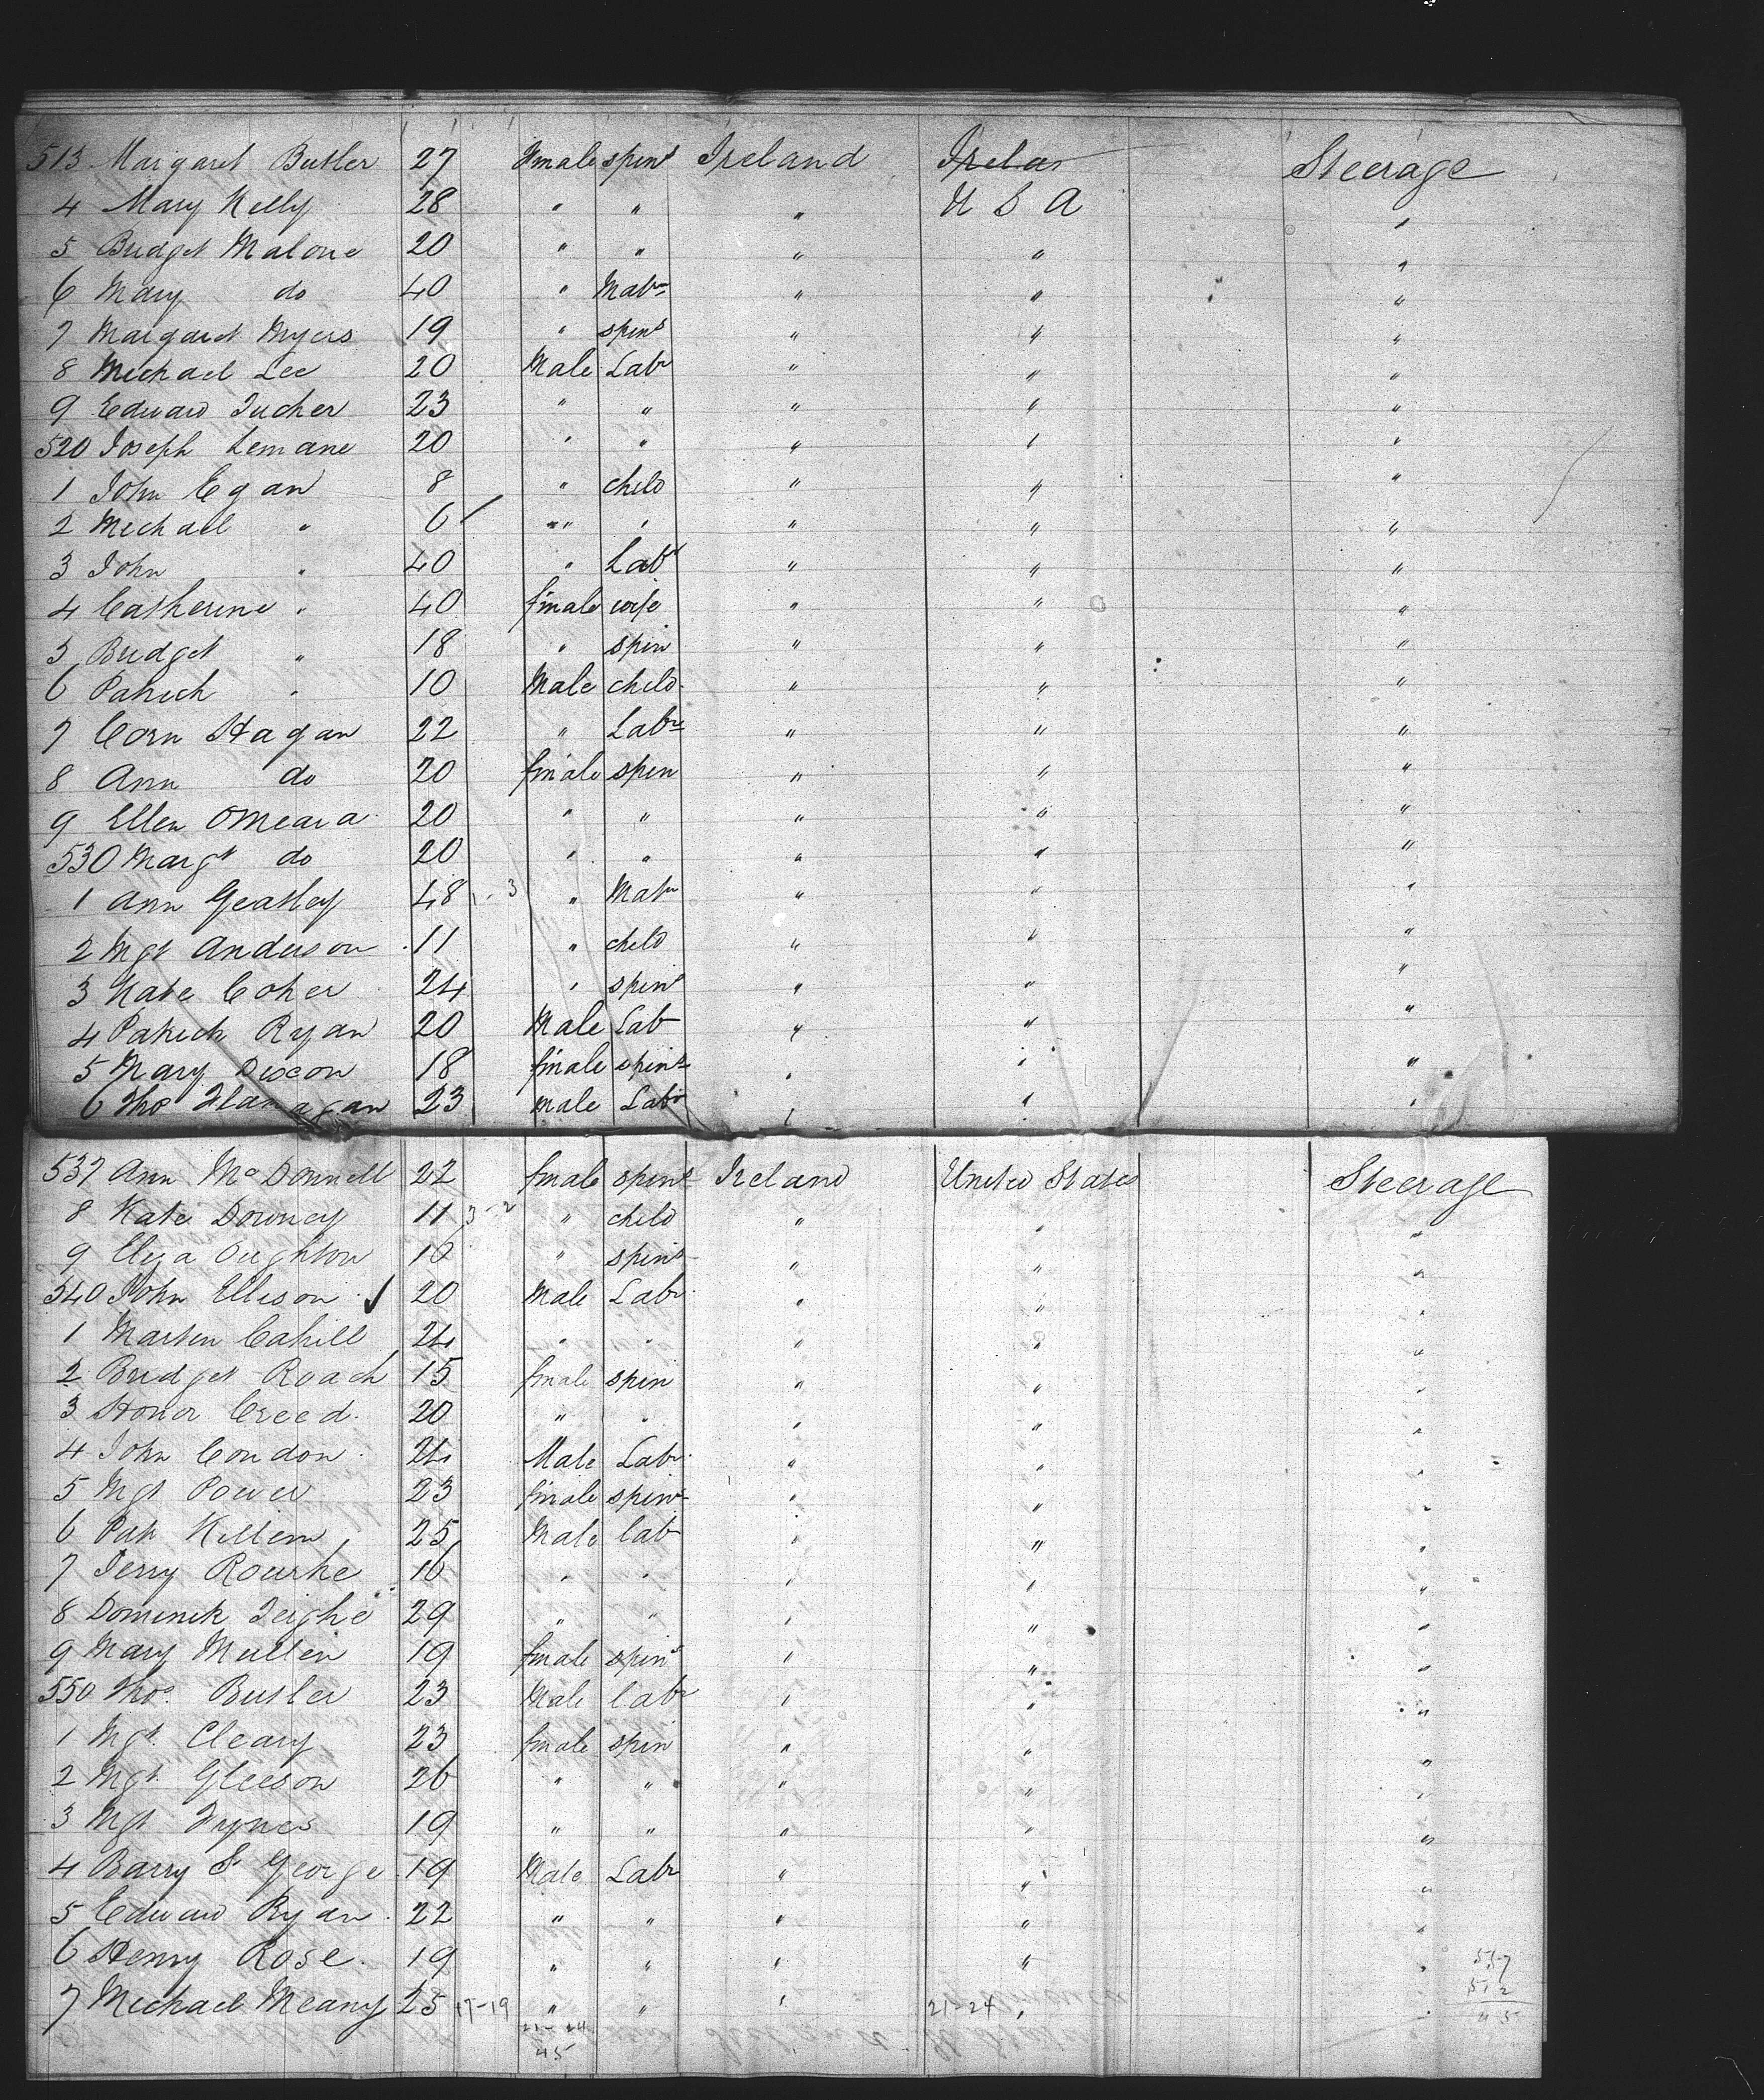 513 Margaret Butler 27 Female spinr Ireland Irelan Steerage
4 Mary Kelly 28 " " " U S A "
5 Bridget Malone 20 " " " " "
6 Mary do 40 " Matr " " "
7 Margaret Myers 19 " spinr " " "
8 Michael Lee 20 Male Labr " " "
9 Edward Tucher 23 " " " " "
520 Joseph Lemane 20 " " " " "
1 John Egan 8 " child " " "
2 Michael " 6 " " " " "
3 John " 40 " Labr " " "
4 Catherine " 40 female wife " " "
5 Bridget " 18 " spin " " "
6 Patrick " 10 Male child " " "
7 Corn Hagan 22 " Labr " " "
8 Ann do 20 female spin " " "
9 Ellen OMeara 20 " " " " "
530 Margt do 20 " " " " "
1 Ann Geatley 48 1-3 " Matr " " "
2 Mgt Anderson 11 " child " " "
3 Kate Coher 24 " spinr " " "
4 Patrick Ryan 20 Male Lab " " "
5 Mary Dixon 18 female spinr " " "
6 Thos Flanagan 23 male Labr " " "
537 Ann McDonnell 22 female spinr Ireland United States Steerage
8 Kate Downey 11 3-2 " child " " "
9 Eliza Oughton 10 " spinr " " "
540 John Ellison 20 Male Labr " " "
1 Marten Cahill 24 " " " " "
2 Bridget Roach 15 female spin " " "
3 Honor Creed 20 " " " " "
4 John Condon 24 Male Labr " " "
5 Mgt Power 23 female spinr " " "
6 Pat Killem 25 Male lab " " "
7 Terry Rourke 16 " " " " "
8 Dominik Teighe 29 " " " " "
9 Mary Mullen 19 female spinr " " "
550 Thos. Butler 23 Male labr " " "
1 Mgt. Cleary 23 female spin " " "
2 Mgt. Gleeson 26 " " " " "
3 Mgt Tynes 19 " " " " "
4 Barry St George 19 Male Labr " " "
5 Edward Ryan 22 " " " " "
6 Henry Rose 19 " " " " "
557
7 Michael Meany 25 17-19 " " " 21-24 " " 512
21-24 45
45